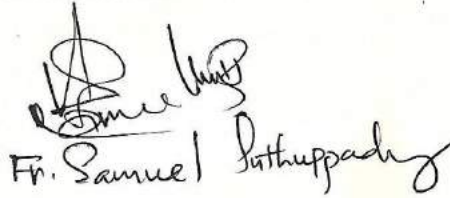 Fr. Samuel Puthuppady